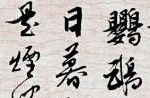 鸚鵡
日暮
是煙